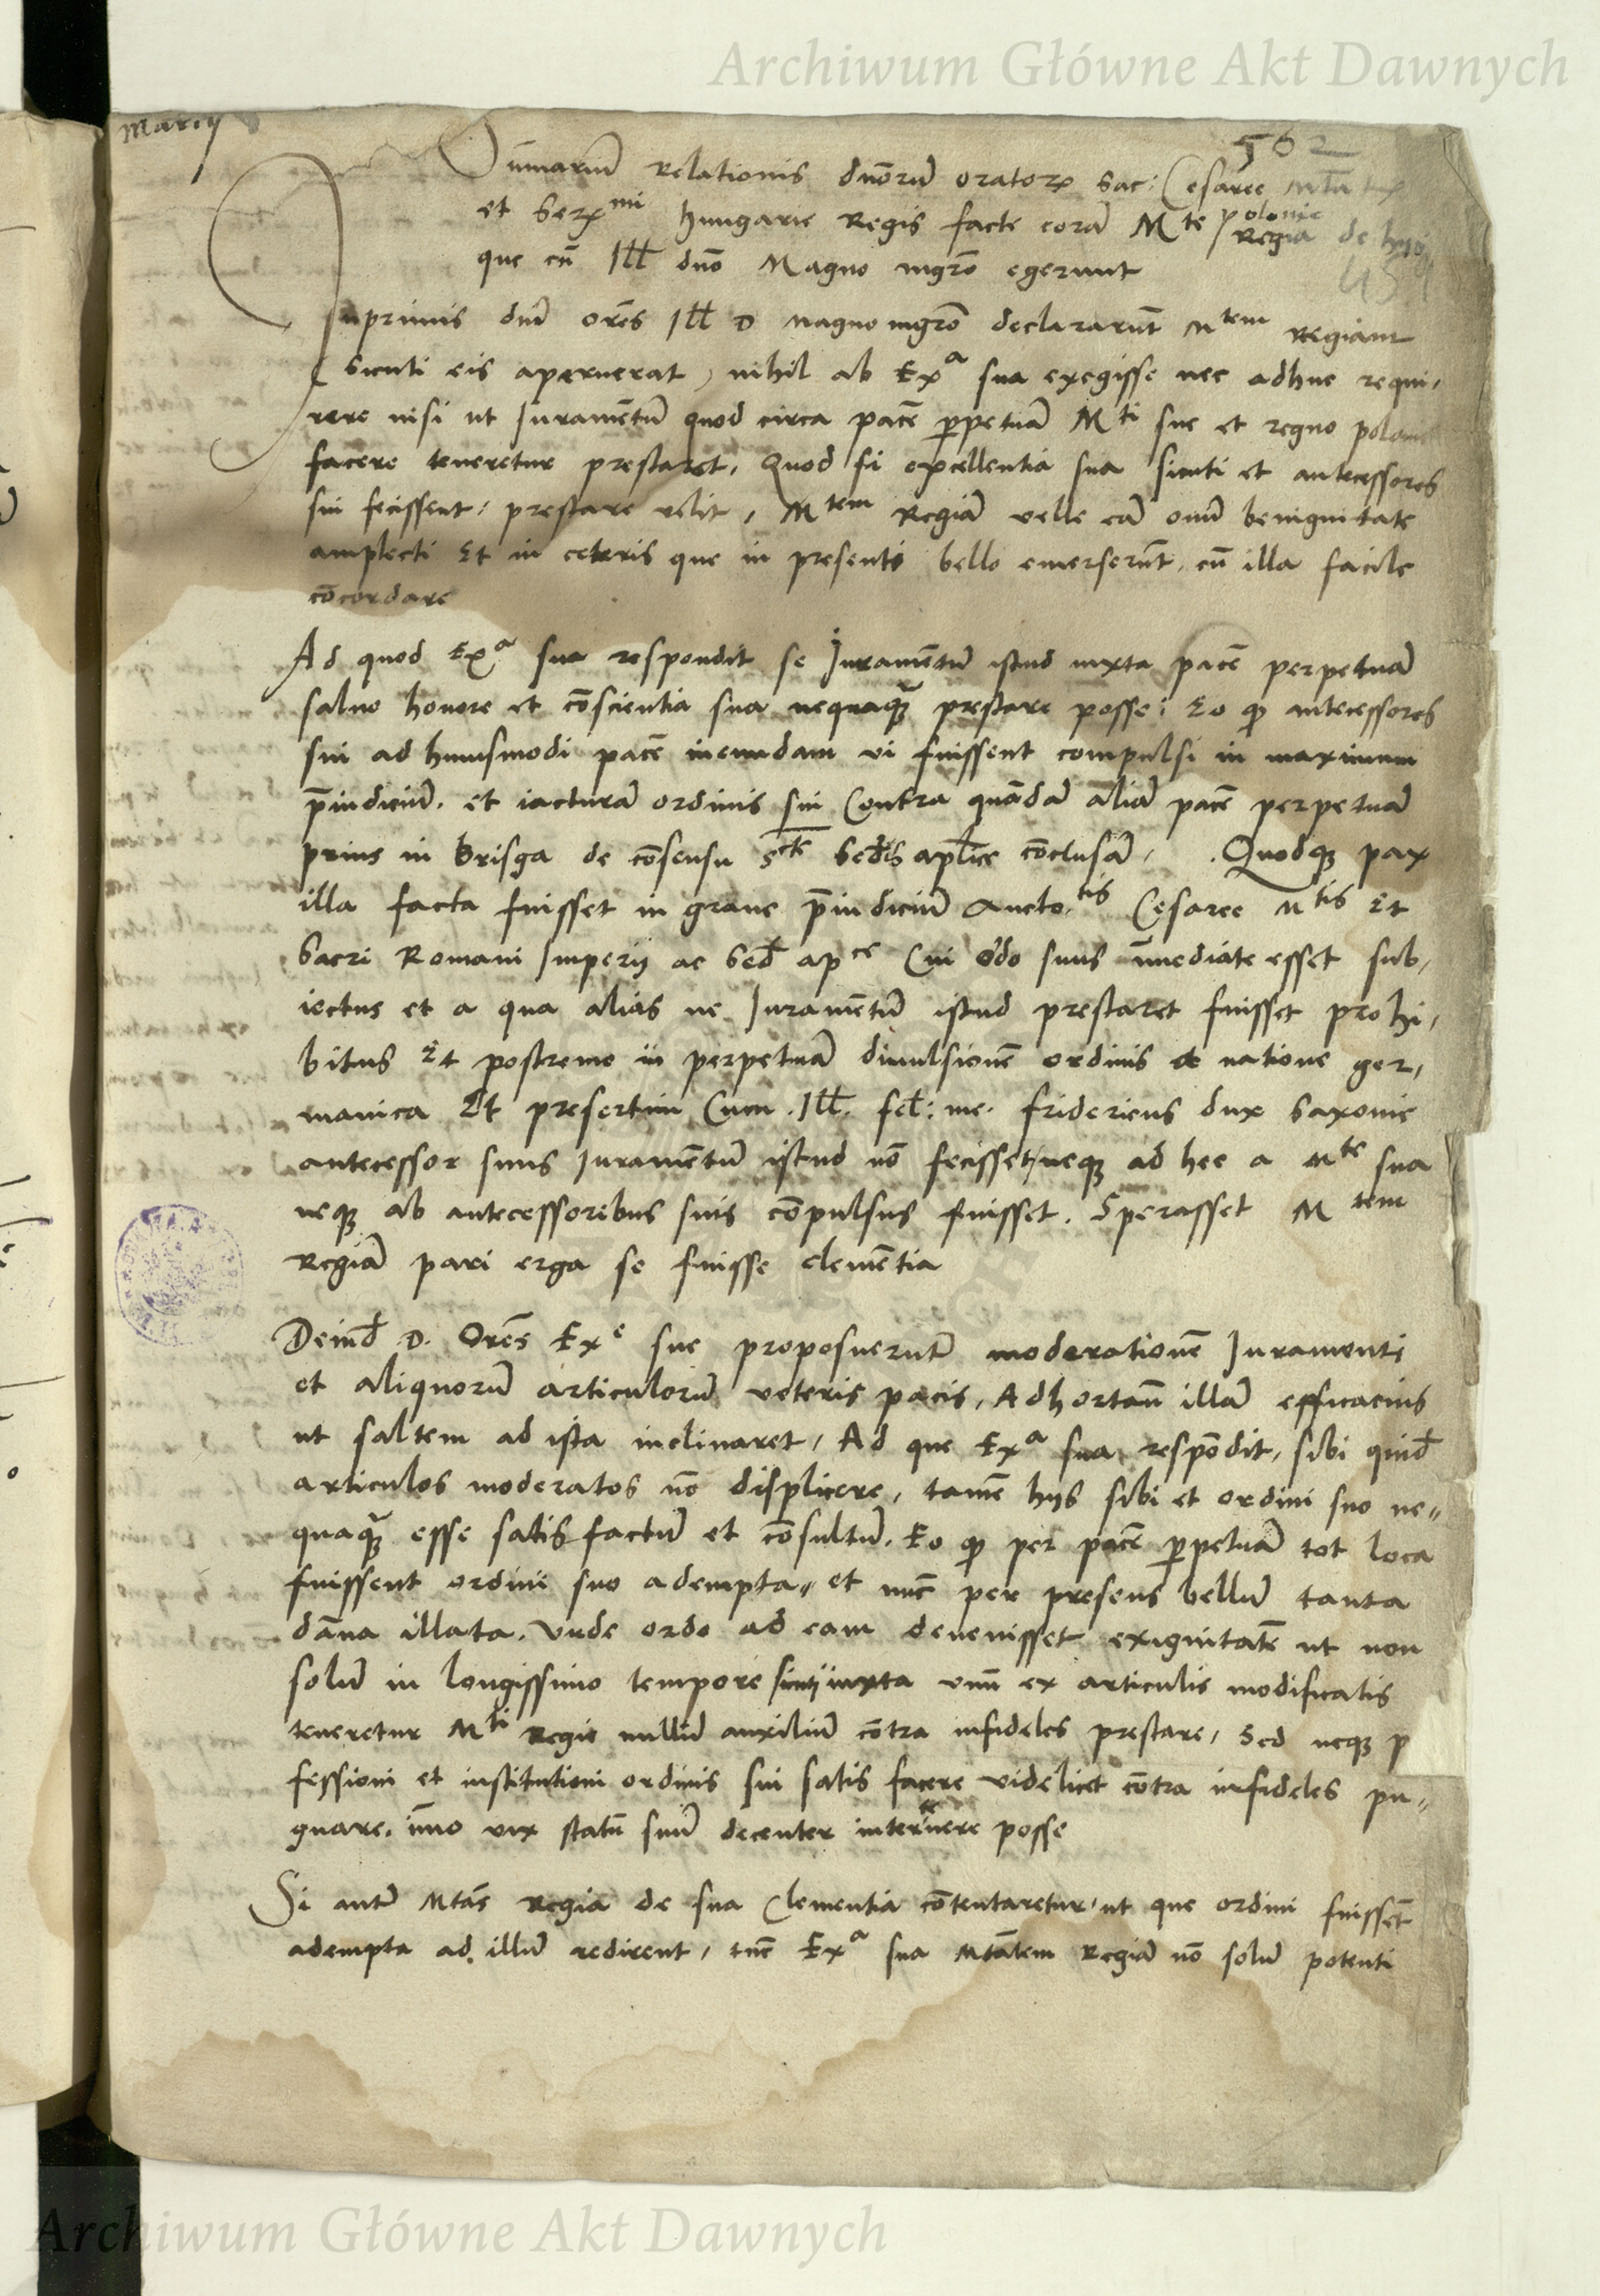 Archiwum Główne Akt Dawnych
Marcij
562
Sūmariū Relationis dnōrū oratorꝝ sac: Cesaree
et Serᵐⁱ hungarie Regis facte corā Mte polonie Regia de hijs
que cū Illꝰ dnō Magno mgrō egerunt
Inprimis dnī orēs Illꝰ D Magno mgrō declararūt Mtem Regiam
Sicuti eis aperuerat, nihil ab Exᵃ sua exegisse nec adhuc requi,
rere nisi ut Juramētū quod circa pacē ꝑpetuā Mti sue et regno polonie
facere teneretur prestaret, Quod si excellentia sua sicuti et antecessores
sui fecissent, prestare velit, Mtem Regiā velle eā omī benignitate
amplecti Et in ceteris que in presenti bello emerserūt, cū illa facile
cōcordare
Ad quod Exᵃ sua respondit se Juramētū istud iuxta pacē perpetuā
saluo honore et cōscientia sua nequaqꝫ prestare posse: Eo ꝙ antecessores
sui ad huiusmodi pacē ineundam vi fuissent compulsi in maximum
p̄iudiciū, et iacturā ordinis sui Contra quādā aliā pacē perpetuā
prius in Brisga de cōsensu Scte Sedis aplice cōclusā, Quodqꝫ pax
illa facta fuisset in graue p̄iudiciū Auctoᵗⁱˢ Cesaree Mtis Et
Sacri Romani Imperij ac Sed̄ apᶜᵉ Cui Ordo suus īmediate esset sub,
iectus et a qua alias ne Juramētū istud prestaret fuisset prohi,
bitus Et postremo in perpetuā diuulsionē ordinis de natione ger,
manica Et presertim Cum Illꝰ. fel: me. fridericus dux Saxonie
antecessor suus Juramētū istud nō fecisset, neqꝫ ad hec a Mte sua
neqꝫ ab antecessoribus suis cōpulsus fuisset. Sperasset Mtem
Regiā pari erga se fuisse clemētia
Deind̄ D. Orēs Exᵉ sue proposuerūt moderationē Juramenti
et aliquorū articulorū veteris pacis, Adhortanī illā efficacius
ut saltem ad ista inclinaret, Ad que Exᵃ sua respōdit, sibi quid̄
articulos moderatos nō displicere, tamē hijs sibi et ordini suo ne„
quaqꝫ esse satisfactū et cōsultū. Eo ꝙ per pacē ꝑpetuā tot loca
fuissent ordini suo adempta„ et nūc per presens bellū tanta
dāna illata. Vnde ordo ad eam deuenisset exiguitatē ut non
solū in longissimo tempore sicuti iuxta vnū ex articulis modificatis
teneretur Mti Regie nullū auxiliū cōtra infideles prestare, Sed neqꝫ ꝓ
fessioni et institutioni ordinis sui satis facere videlicet cōtra infideles pu„
gnare, īmo vix statū suū decenter intenere posse
Si autē Mtās Regia de sua Clementia cōtentaretur, ut que ordini fuissēt
adempta ad illū redirent, tūc Exᵃ sua Mtātem Regiā nō solū potenti
Archiwum Główne Akt Dawnych